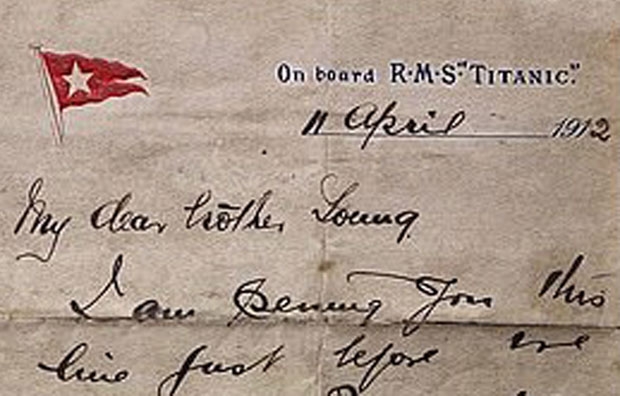 On board R·M·S "TITANIC."
11 April 1912
My dear brother Young
I am penning you this
line just before we